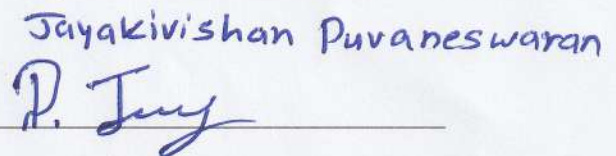 Jayakivishan Puvaneswaran
P. Jay